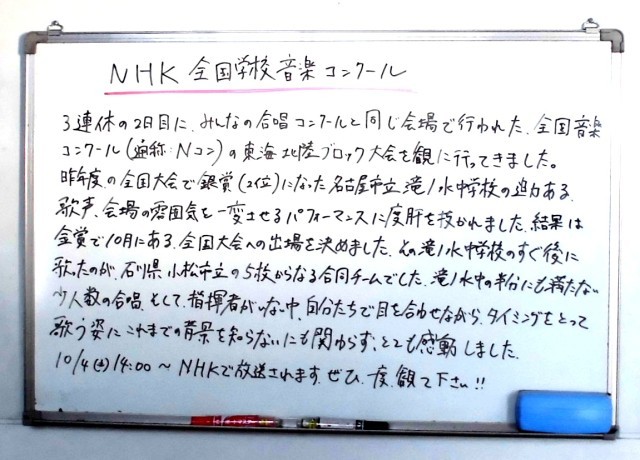 NHK 全国学校音楽コンクール
3連休の2日目に、みんなの合唱コンクールと同じ会場で行われた、全国音楽
コンクール(通称:Nコン)の東海北陸ブロック大会を観に行ってきました。
昨年度の全国大会で銀賞(2位)になった名古屋市立滝ノ水中学校の迫力ある
歌声、会場の雰囲気を一変させるパフォーマンスに度肝を抜かれました。結果は
金賞で10月にある、全国大会への出場を決めました。その滝ノ水中学校のすぐ後に
歌ったのが、石川県小松市立の5校からなる合同チームでした。滝ノ水中の半分にも満たない
少人数の合唱。そして、指揮者がいない中、自分たちで目を合わせながら、タイミングをとって
歌う姿に これまでの背景を知らないにも関わらず、とても感動しました。
10/4(土)14:00〜NHKで放送されます。ぜひ一度、観て下さい!!